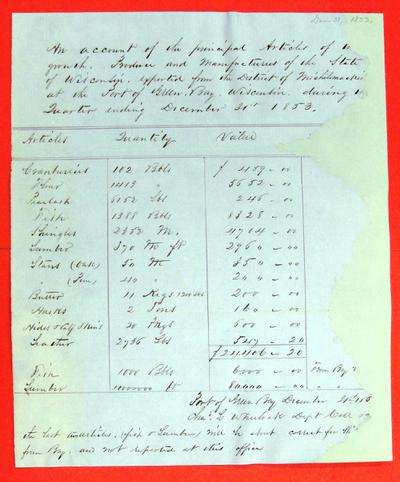 Dec 31, 1853.
An account of the principal Articles of
growth. Produce and Manufactures of the State
of Wisconsin. exported from the District of Michilimackin
at the Port of Green Bay. Wisconsin. during
Quarter ending December 31st 1853.
Articles Quantity Value
Cranburries 102 Bbls $ 459 - 00
Flour 1413 " 5652 - 00
Pearlash 6152 Lbs 246 - 00
Fish 1388 Bbls 8328 - 00
Shingles 2353 M. 4714 - 00
Lumber 370 M ft 2960 - 00
Staves (Oak) 50 M 350 - 00
40 " 200 - 00
Butter 11 Kegs 1200 Lbs 200 - 00
Husks 2 Tons 160 - 00
Hides & Calf Skins 20 Pkgs 600 - 00
Leather 2736 Lbs 547 - 20
$24406 - 20
Fish 1000 Bbls 6000 - 00 from Bay
Lumber 10000000 ft 80,000 - 00 "
Port of Green Bay December 31st 185
Chas. L Wheelock Dept Coll
the last two articles, (fish & Lumber) will be about correct for
from Bay, and not reported at this office